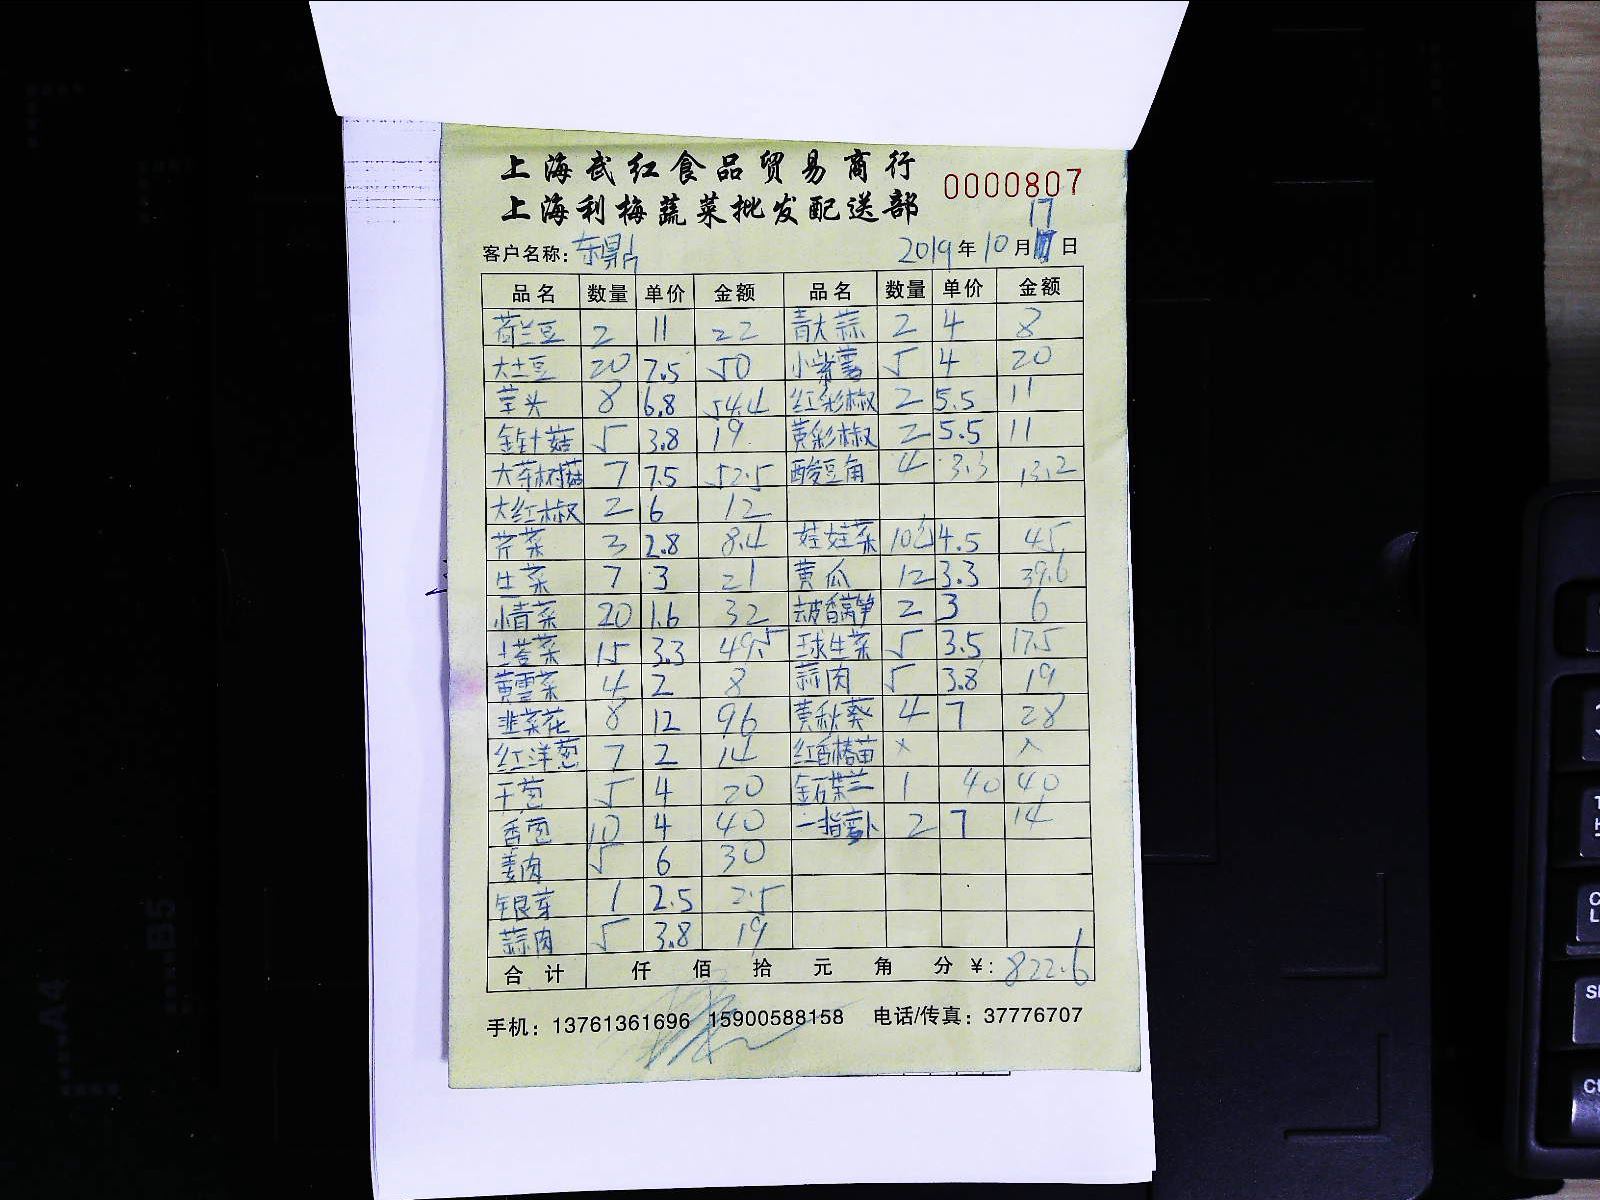 上海武红食品贸易商行
0000807
上海利梅蔬菜批发配送部
17
客户名称：东鼎 2019年10月 日
品名 数量 单价 金额 品名 数量 单价 金额
荷兰豆 2 11 22 青大蒜 2 4 8
大土豆 20 2.5 50 小紫薯 5 4 20
芋头 8 6.8 54.4 红彩椒 2 5.5 11
金针菇 5 3.8 19 黄彩椒 2 5.5 11
大茶树菇 7 7.5 52.5 酸豆角 4 3.3 13.2
大红椒 2 6 12
芹菜 3 2.8 8.4 娃娃菜 10包 4.5 45
生菜 7 3 21 黄瓜 12 3.3 39.6
小青菜 20 1.6 32 去皮香莴笋 2 3 6
塔菜 15 3.3 49.5 球生菜 5 3.5 17.5
黄雪菜 4 2 8 蒜肉 5 3.8 19
韭菜花 8 12 96 黄秋葵 4 7 28
红洋葱 7 2 14 红香椿苗 × ×
干葱 5 4 20 金石斛兰 1 40 40
香葱 10 4 40 一指萝卜 2 7 14
姜肉 5 6 30
银芽 1 2.5 2.5
蒜肉 5 3.8 19
合计 仟 佰 拾 元 角 分 ¥：822.6
手机：13761361696 15900588158 电话/传真：37776707
A4
B5